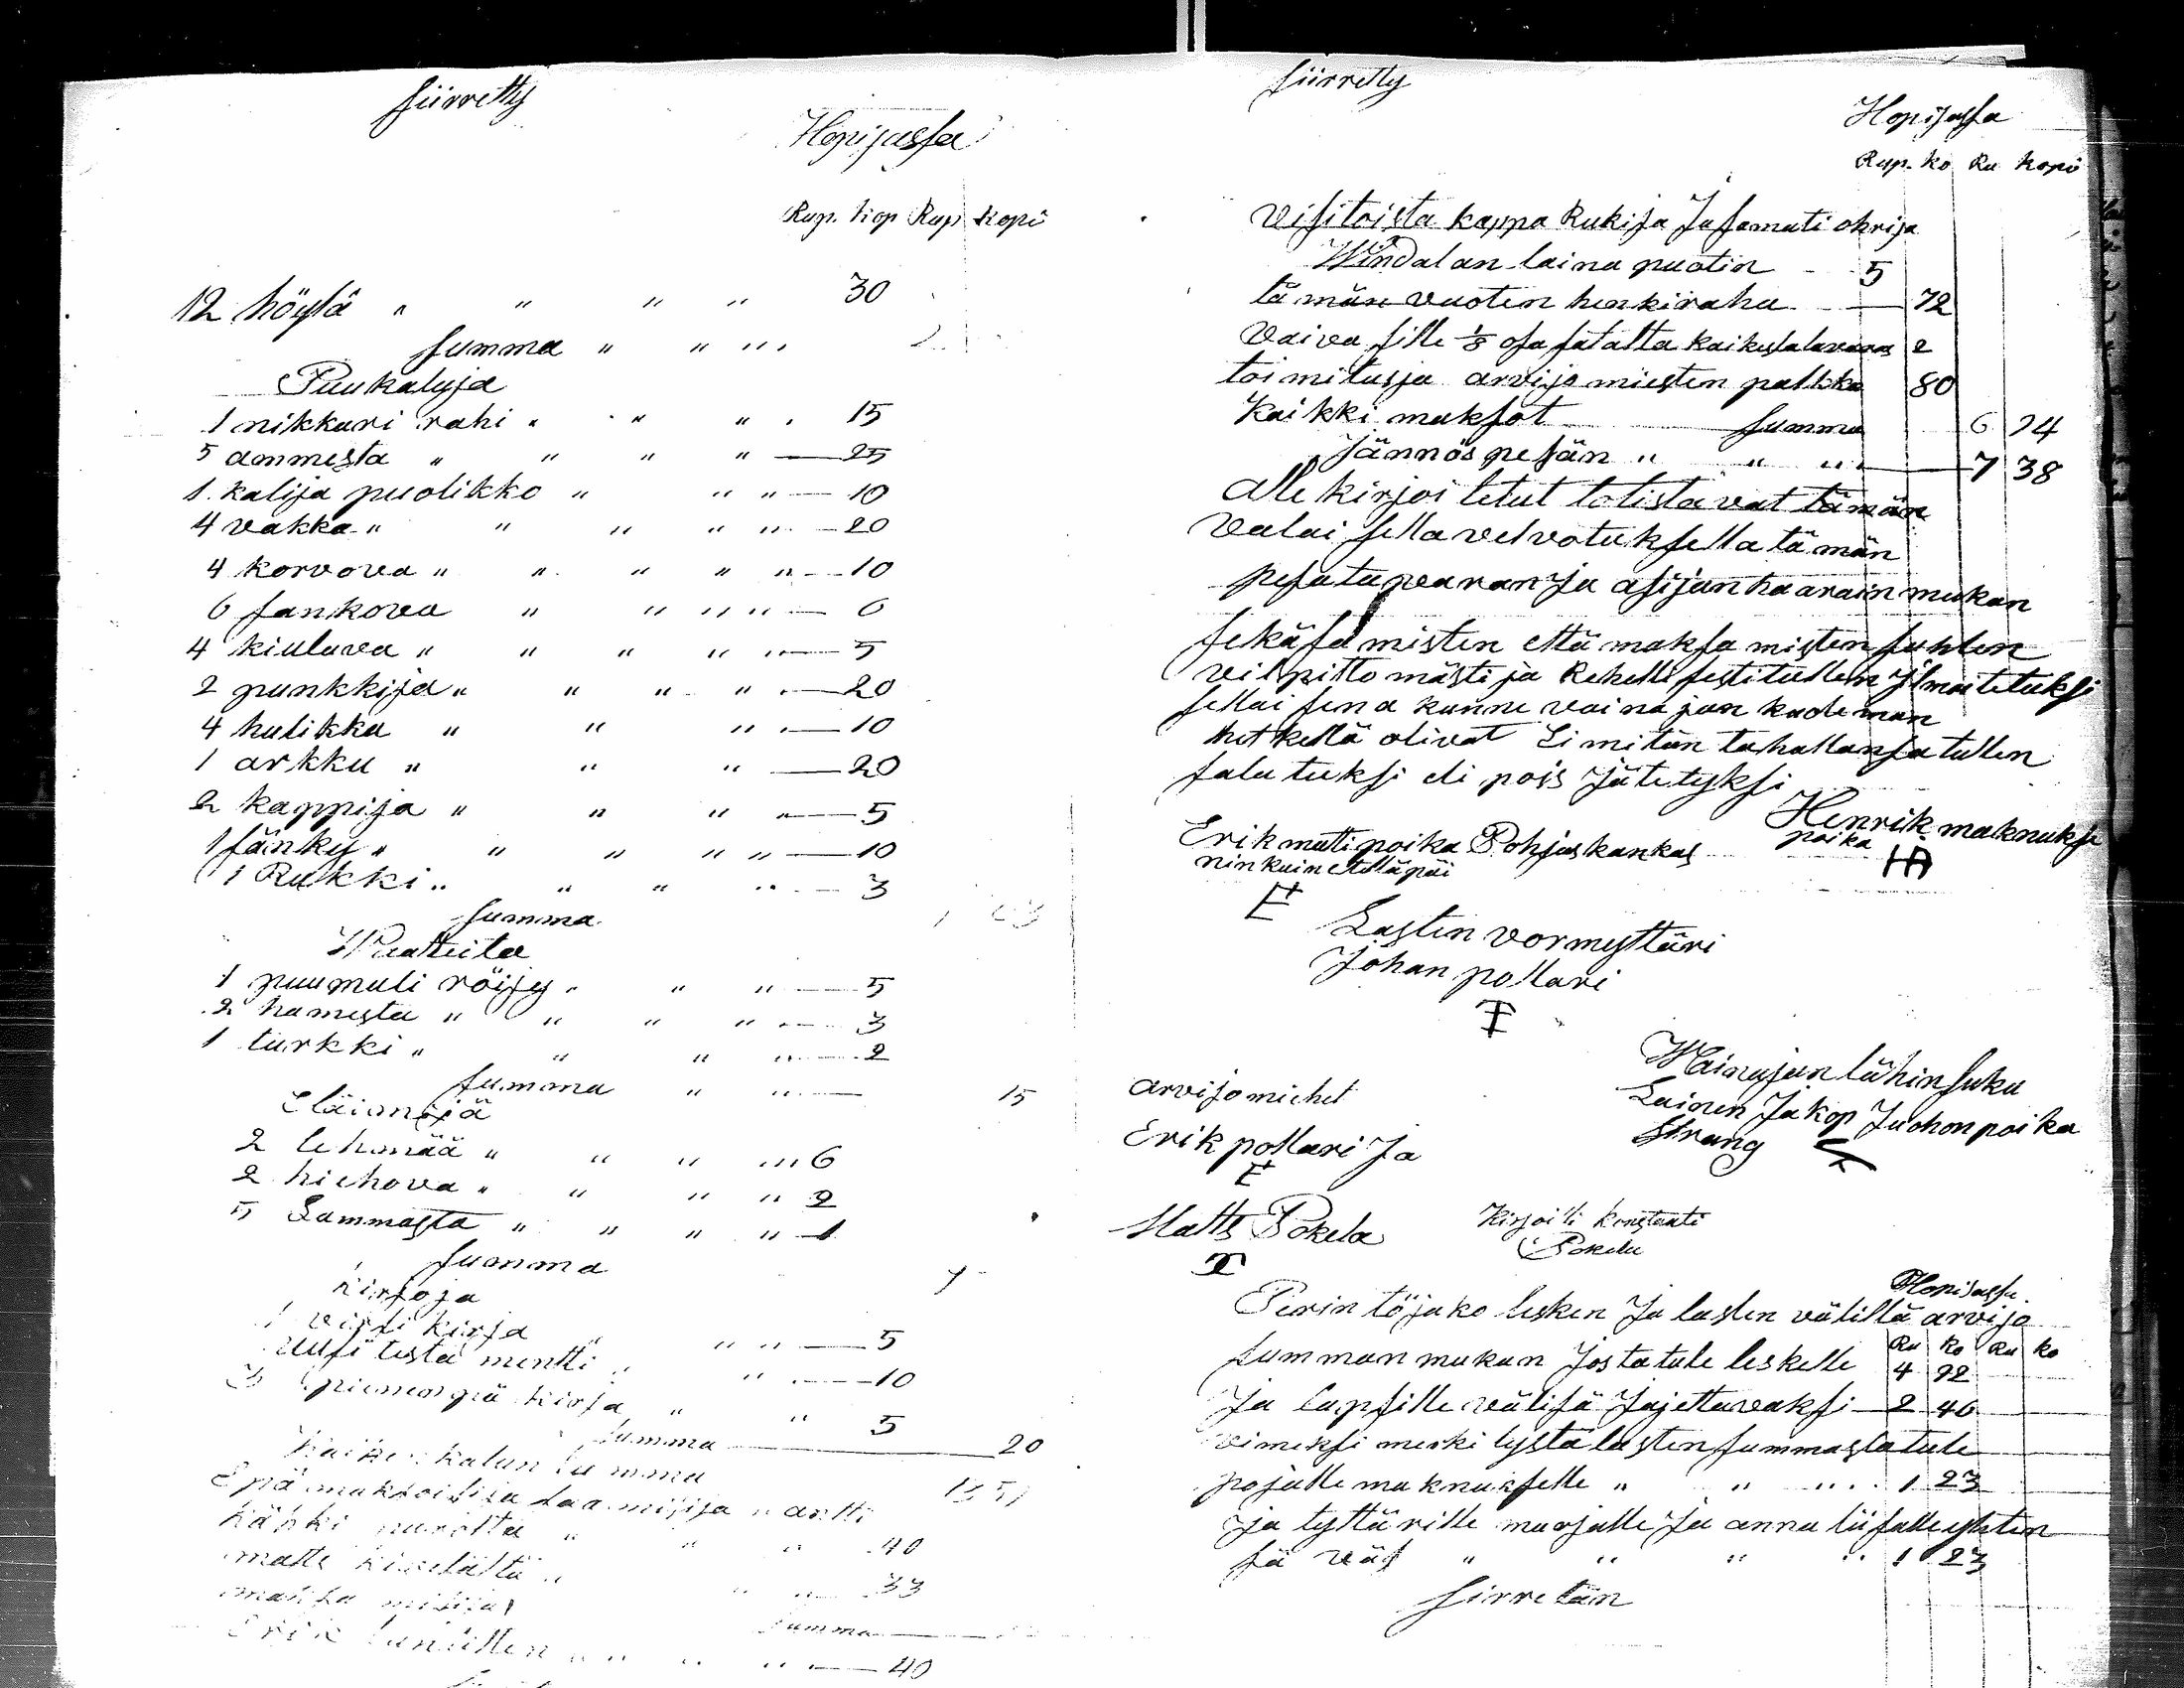 siirretty
Hopijassa
Rup. kop Rup kopi
12 höylä " " " " 30
summa " " " "
Puukaluja
1 nikkari rahi " " " " 15
5 ammesta " " " " — 25
1 kalija puolikko " " " — 10
4 vakka " " " " " — 20
4 korvova " " " " " — 10
6 sankova " " " " — 6
4 kiuluva " " " " " — 5
2 punkkija " " " " — 20
4 hulikka " " " — 10
1 arkku " " " — 20
2 kappija " " " " — 5
1 sänky " " " " " — 10
1 Rukki " " " " — 3
summa
Waateita
1 puumuli röijy " " " — 5
2 hamesta " " " " — 3
1 turkki " " " " — 2
summa " " — 15
eläimijä
2 lehmää " " " " 6
2 hiehova " " " " 2
5 Lammasta " " " " 1
summa
kirjoja
1 virsi kirja " " " — 5
uusi testa mentti " " — 10
kirja " " 5
summa — 20
kalun summa
antti
" " 40
matts " " " 33
summa
Erik " " " — 40
siirretty
Hopijassa
Rup. ko Ru kopi
visitoista kappa Rukija Jasamati ohrija
Windalan laina puotin 5
tämän vuoten henkiraha — 72
vaiva sille 1/8 osa satalta kaikesta tavaras 2
toimitusja arvijo miesten palkka 80
Kaikki maksot summa 6 94
Jännös pesän " " " — 7 38
alle kirjoi tetut totistavat tämän
valai sella velvotuksella tämän
pesatavaran Ja asijanhaarain mukan
sekäsa misten että maksa misten suhten
vilpitto mästi ja Rehelli sesti tullen Jlmoitetuksi
sellai sena kunne vainajan kadem an
hetkellä olivat Ei mitän tahallansa tullen
salatuksi eli pois Jätetyksi
Erik mati poika Pohjaskankas
ninkuin etellä päi
E
Henrik maknuksi
poika
HA
Lasten vormyttäri
Johan pollari
Wainajan lähin suku
Lainen Jakop Juhonpoika
Strang
arvijo miehet
Erik pollari Ja
E
Matts Pokela
Kirjoitti konstanti
Pokela
Hopijassa
Perin töjako lesken Ja lasten välillä arvijo
Ru ko Ru ko
summan mukan Josta tule leskelle 4 92
Ja lapsille välisä Jajettavaksi — 2 46
vimeksi merki tystä lasten summasta tule
pojalle maknuksselle " " " 1 23
Ja tyttärille marjalle Ja anna liisalle yhten
sä väs " " " " 1 23
siirretän